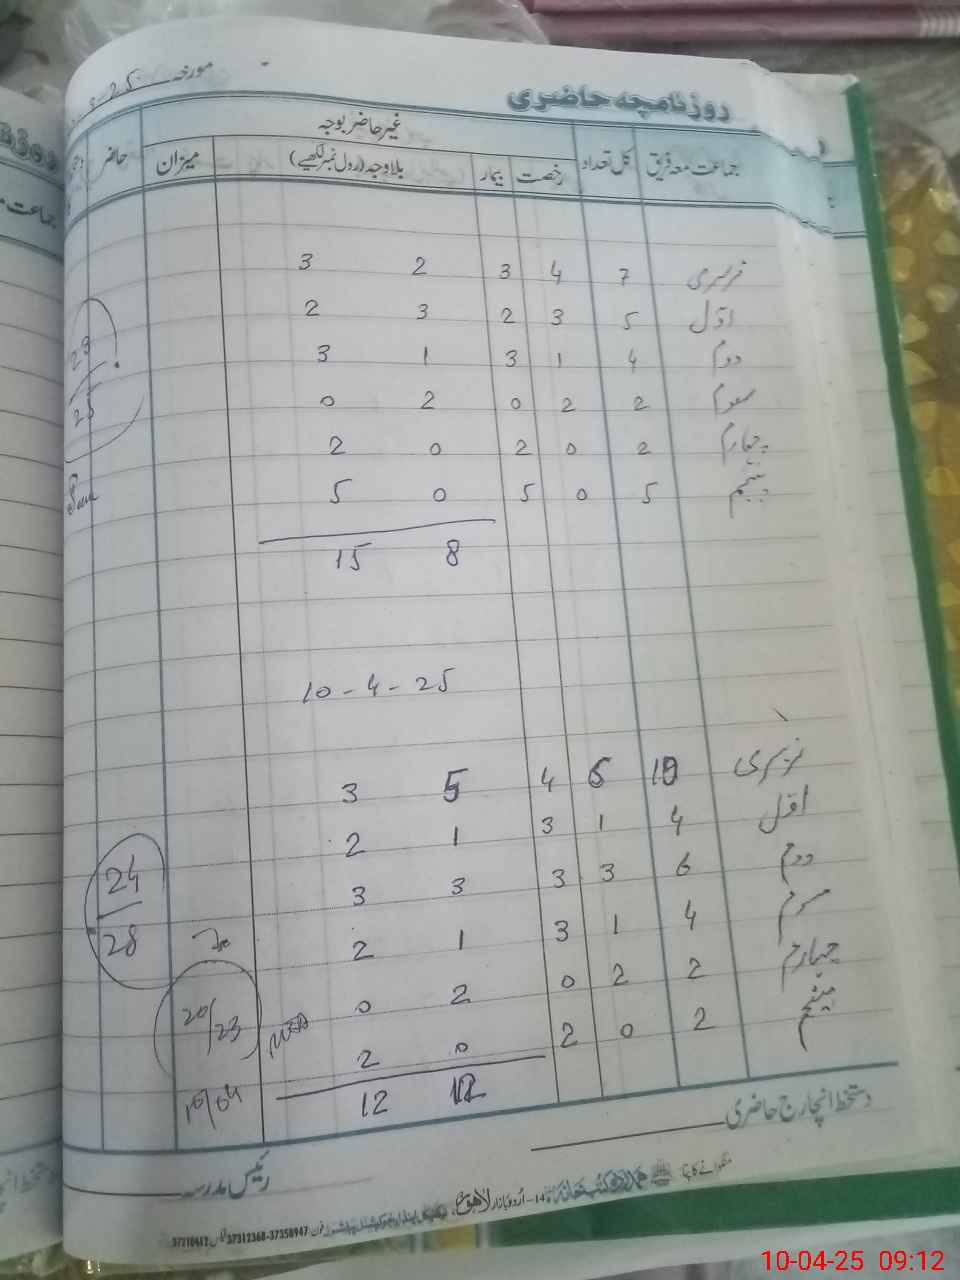 مورخہ 3-25
روزنامچہ حاضری
جماعت معہ فریق کل تعداد غیر حاضر بوجہ حاضر
رخصت بیمار بلاوجہ (رول نمبر لکھیے) میزان
نرسری 7 4 3 2 3
اوّل 5 3 2 3 2
دوم 4 1 3 1 3
سوم 2 2 0 2 0
چہارم 2 0 2 0 2
پنجم 5 0 5 0 5
8 15
23
25
10-4-25
نرسری 10 6 4 5 3
اوّل 4 1 3 1 2
دوم 6 3 3 3 3
سوم 4 1 3 1 2
چہارم 2 2 0 2 0
پنجم 2 0 2 0 2
12 12
24
28
20/23
10/04
دستخط انچارج حاضری
رئیس مدرسہ
منگوانے کا پتہ: ہمدرد کتب خانہ 14-اُردو بازار لاہور
فون: 37358947-37312368 فیکس 37210412
جماعت م
10-04-25 09:12